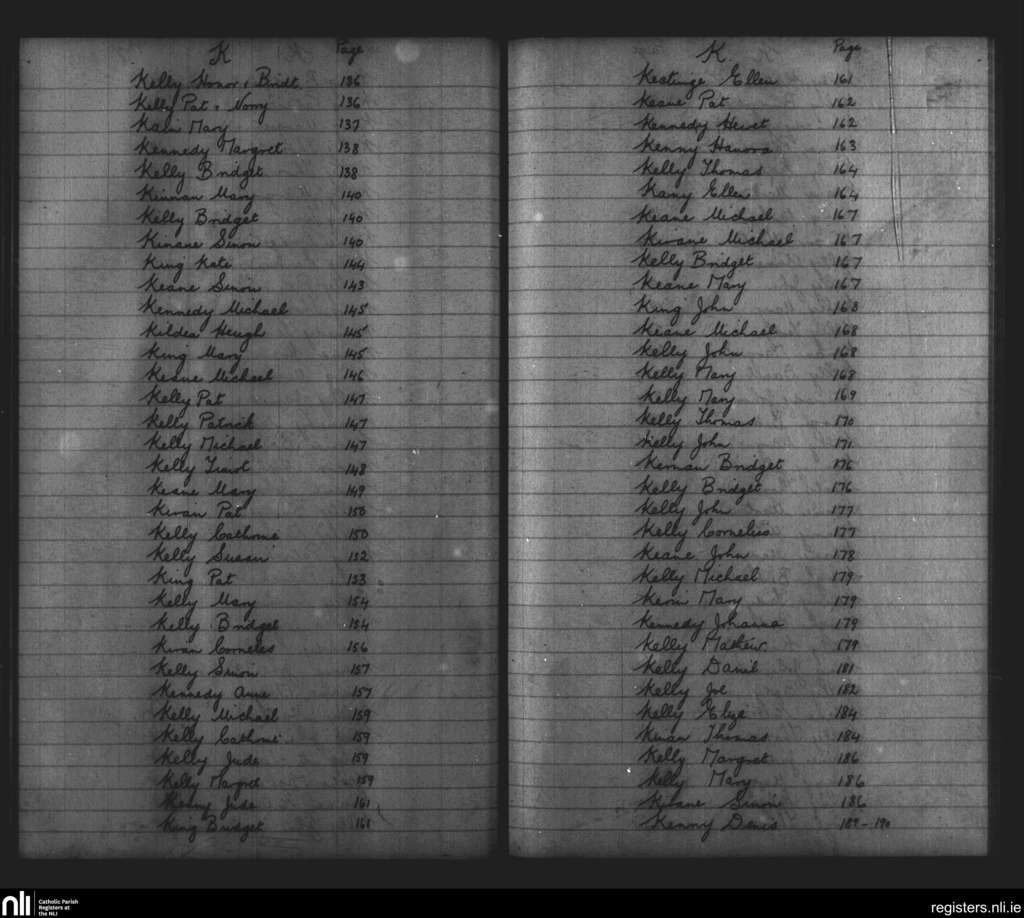 K Page
Kelly Honor & Bridt 136
Kelly Pat & Norry 136
Kain Mary 137
Kennedy Margret 138
Kelly Bridget 138
Kinnan Mary 140
Kelly Bridget 140
Kinane Simon 140
King Kate 144
Keane Simon 143
Kennedy Michael 145
Kildea Heugh 145
King Mary 145
Keane Michael 146
Kelly Pat 147
Kelly Patrick 147
Kelly Michael 147
Kelly 148
Keane Mary 149
Kivan Pat 150
Kelly Cathorine 150
Kelly Susan 152
King Pat 153
Kelly Mary 154
Kelly Bridget 154
Kivan Corneles 156
Kelly Simon 157
Kennedy Anne 157
Kelly Michael 159
Kelly Cathorine 159
Kelly Jude 159
Kelly Margret 159
Kenny Jude 161
King Bridget 161
K Page
Kestinge Ellen 161
Keane Pat 162
Kennedy 162
Kenny Hanora 163
Kelly Thomas 164
Kany Ellen 164
Keane Michael 167
Kivane Michael 167
Kelly Bridget 167
Keane Mary 167
King John 168
Keane Michael 168
Kelly John 168
Kelly Mary 168
Kelly Mary 169
Kelly Thomas 170
Kelly John 171
Kernan Bridget 176
Kelly Bridget 176
Kelly John 177
Kelly Cornelius 177
Keane John 178
Kelly Michael 179
Kevin Mary 179
Kennedy Johanna 179
Kelly Mathew 179
Kelly Daniel 181
Kelly Joe 182
Kelly Elize 184
Kivan Thomas 184
Kelly Margret 186
Kelly Mary 186
Kivane Simon 186
Kenny Denis 189-190
nli Catholic Parish
Registers at
the NLI
registers.nli.ie